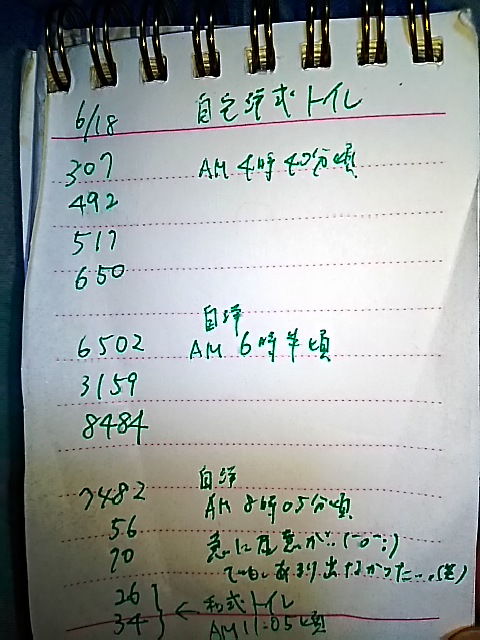 6/18 自宅洋式トイレ
307 AM 4時40分頃
492
517
650
自洋
6502 AM 6時半頃
3159
8484
自洋
7482 AM 8時05分頃
56 急に便意が…(-o-;)
70 でも、あまり出なかった…(笑)
26 ← 和式トイレ
34 AM 11:05頃